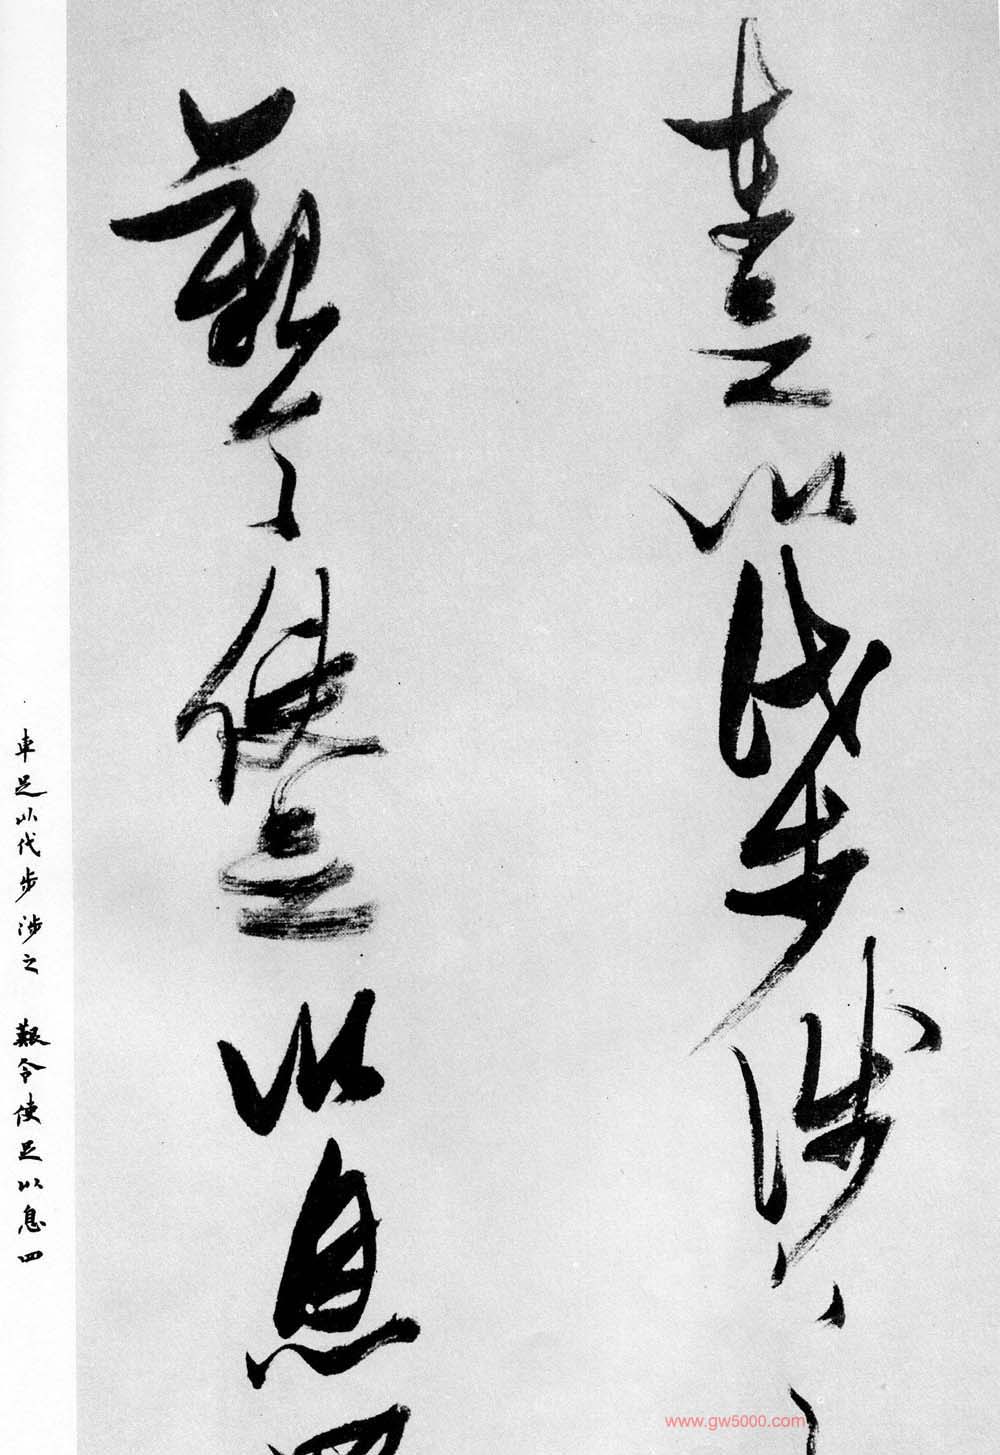 車足以代步涉之
艱令使足以息四
車足以代步涉之 艱令使足以息四
www.gw5000.com